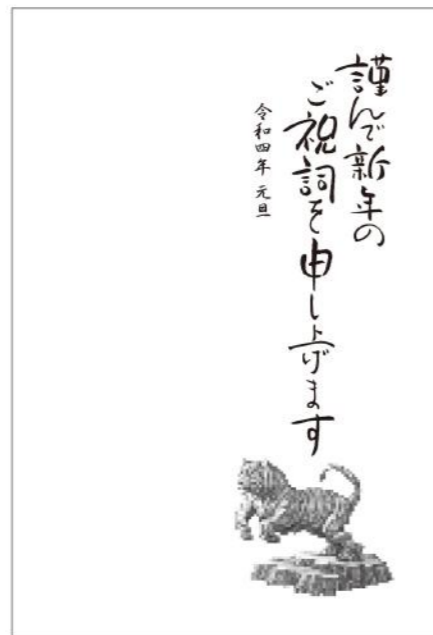 謹んで新年の
ご祝詞を申し上げます
令和四年 元旦